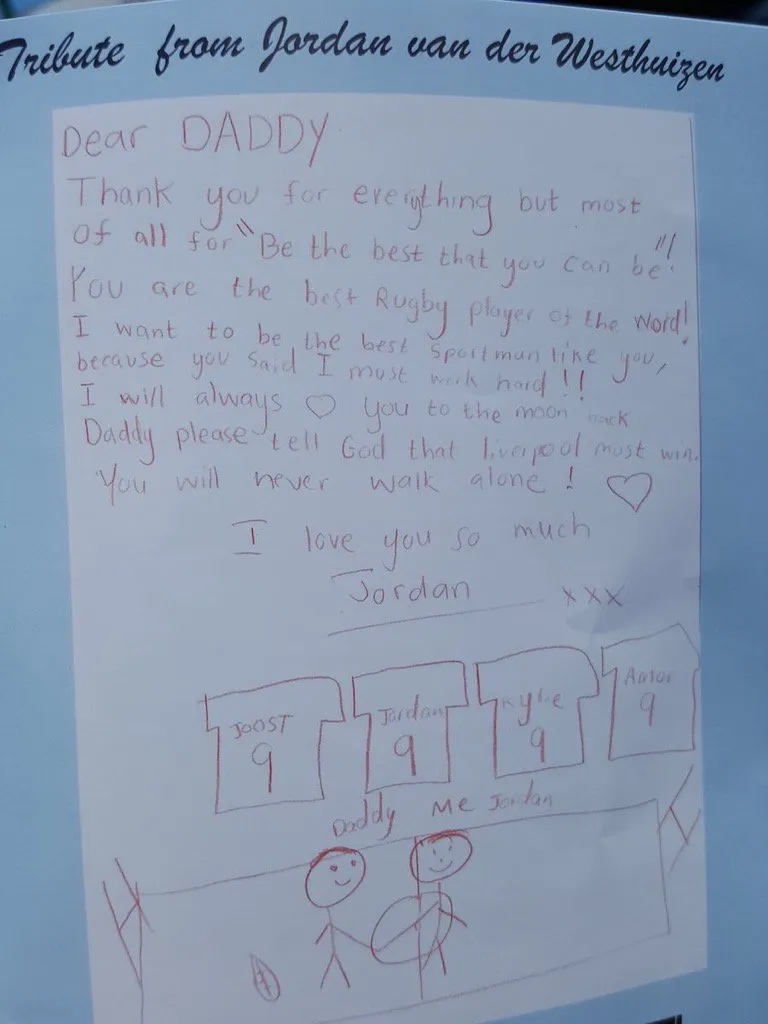 Tribute from Jordan van der Westhuizen
Dear DADDY
Thank you for everything but most
of all for "Be the best that you can be"!
You are the best Rugby player of the word!
I want to be the best Sportman like you,
because you said I must work hard!!
I will always ♡ you to the moon back
Daddy please tell God that liverpool must win.
You will never walk alone! ♡
I love you so much
Jordan xxx
JOOST Jordan Kylie Amor
9 9 9 9
Daddy Me Jordan